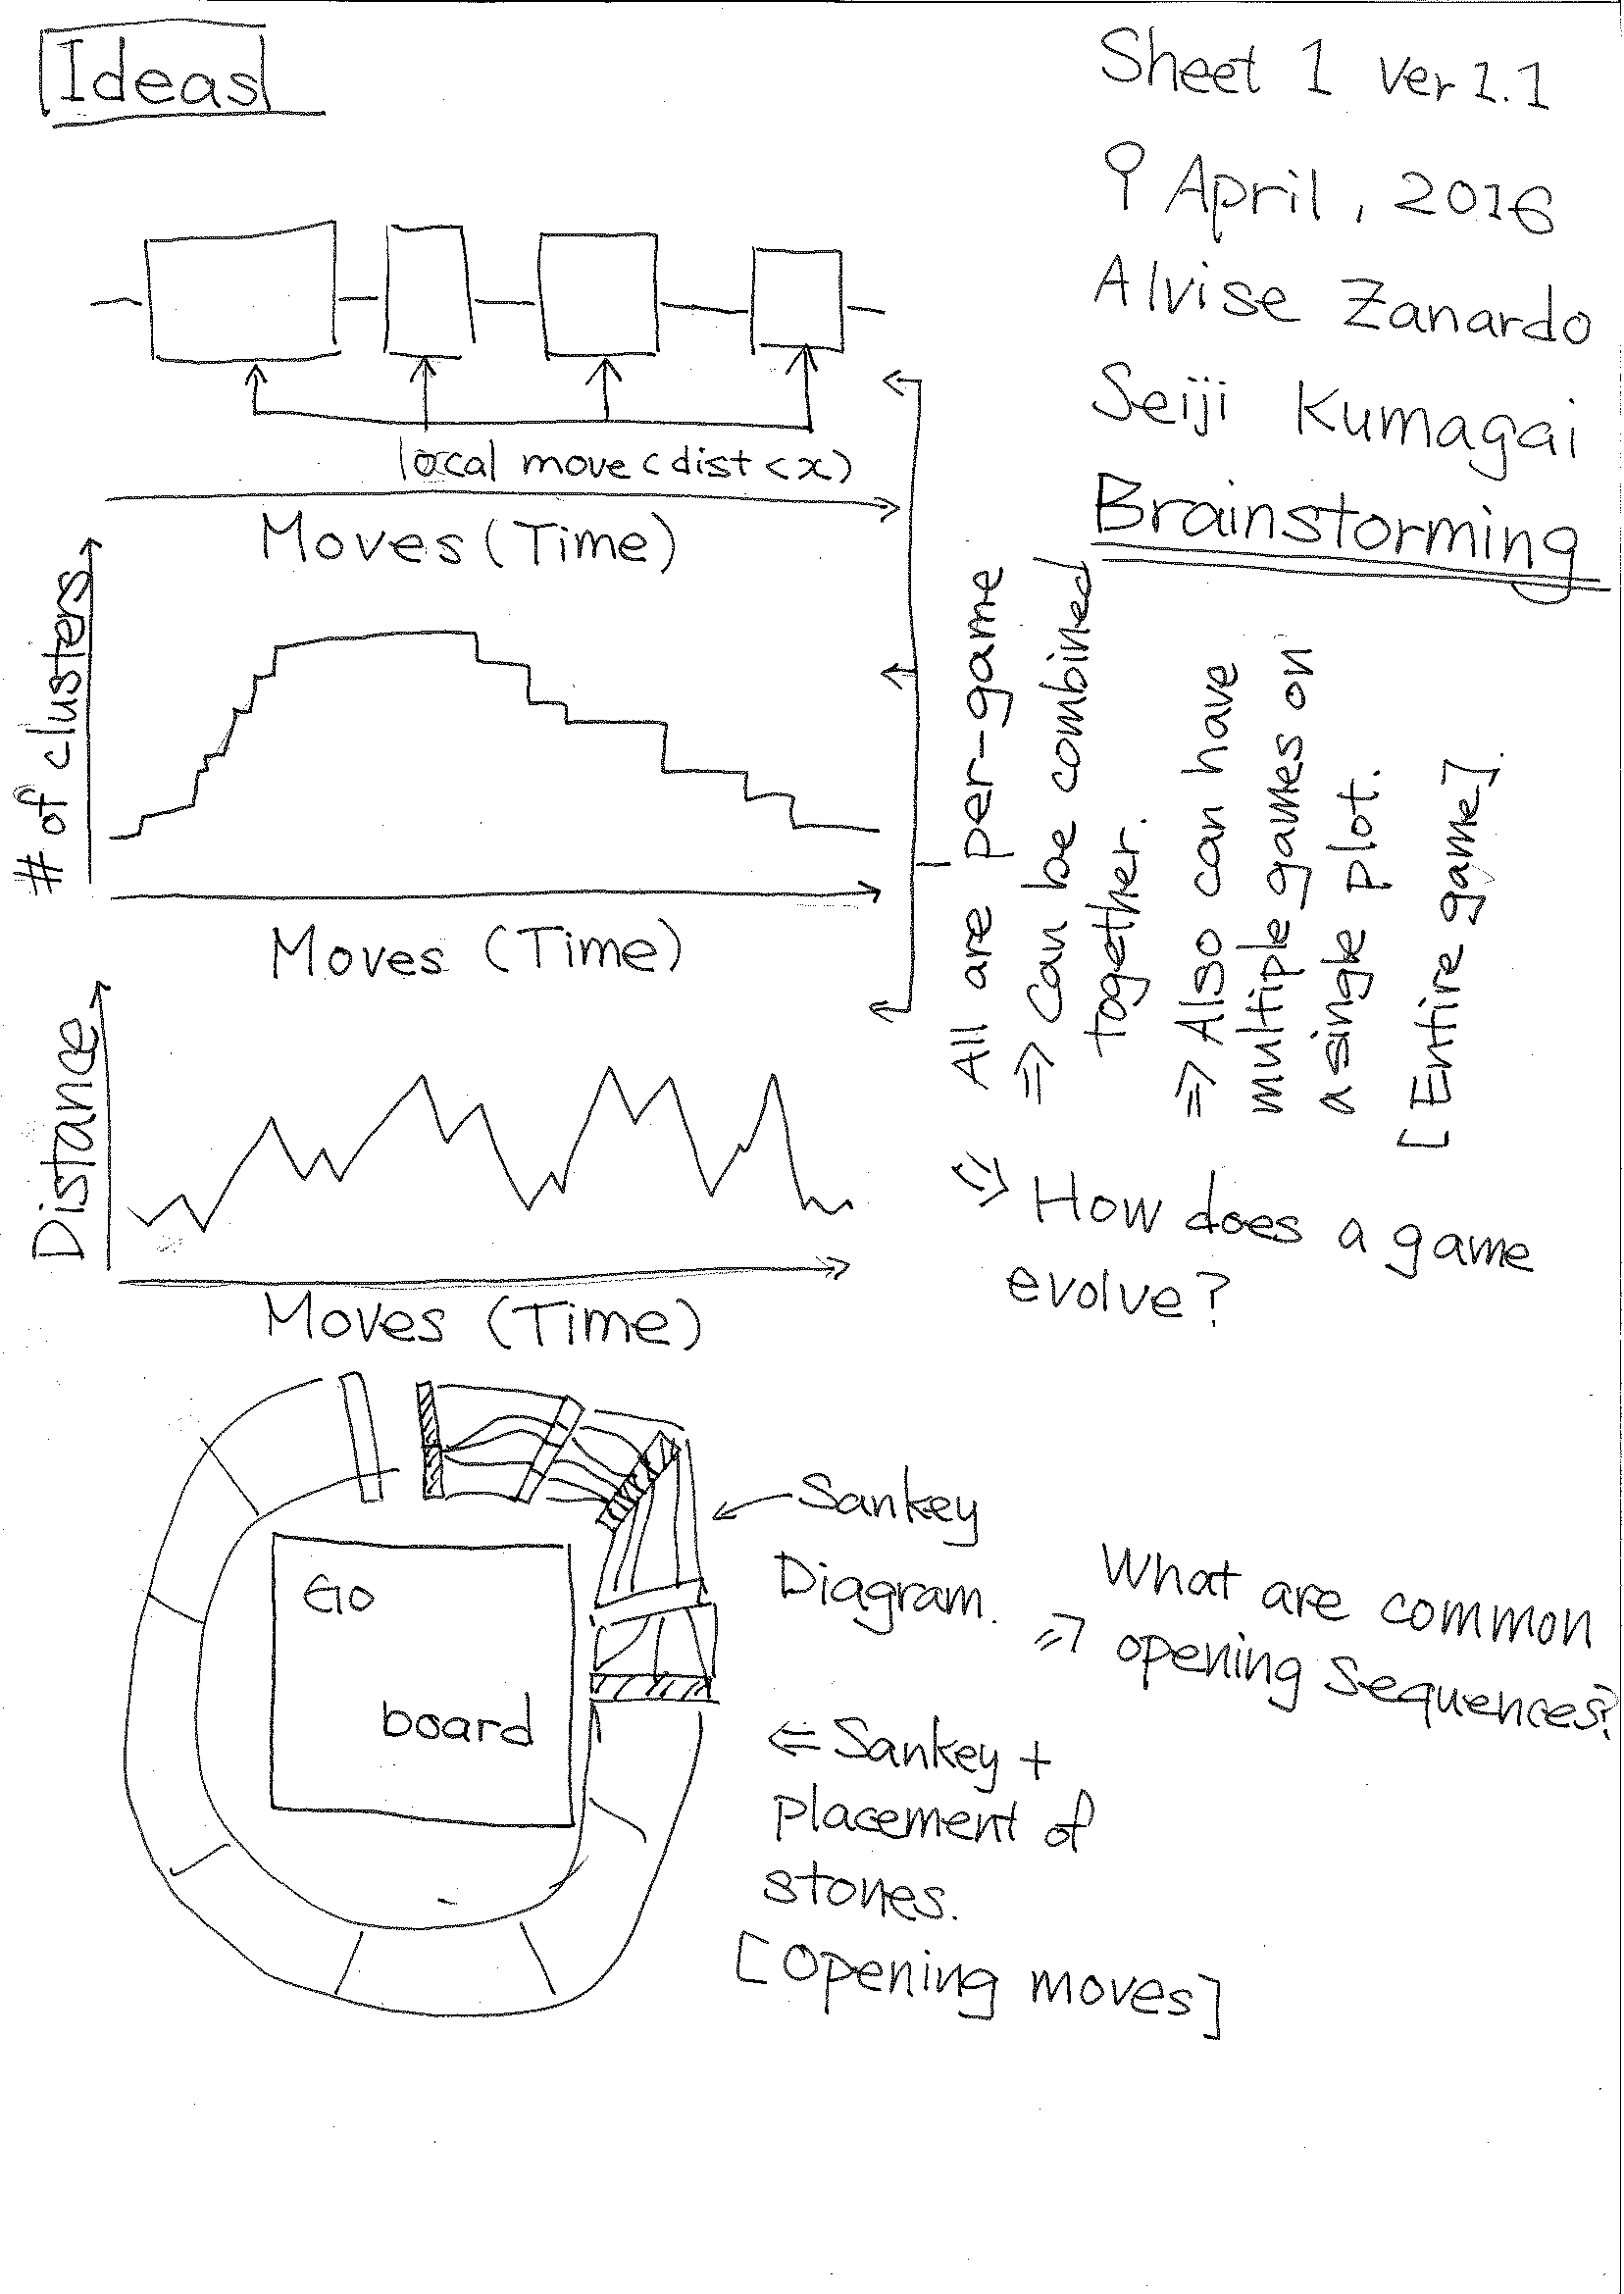 Ideas
Sheet 1 Ver 1.1
9 April, 2016
Alvise Zanardo
Seiji Kumagai
Brainstorming
local move (dist < x)
Moves (Time)
# of clusters
Moves (Time)
Distance
Moves (Time)
All are per-game
⇒ Can be combined
together.
⇒ Also can have
multiple games on
a single plot.
[Entire game].
⇒ How does a game
evolve?
Go
board
← Sankey
Diagram.
⇒ What are common
opening sequences?
⇐ Sankey +
placement of
stones.
[Opening moves]